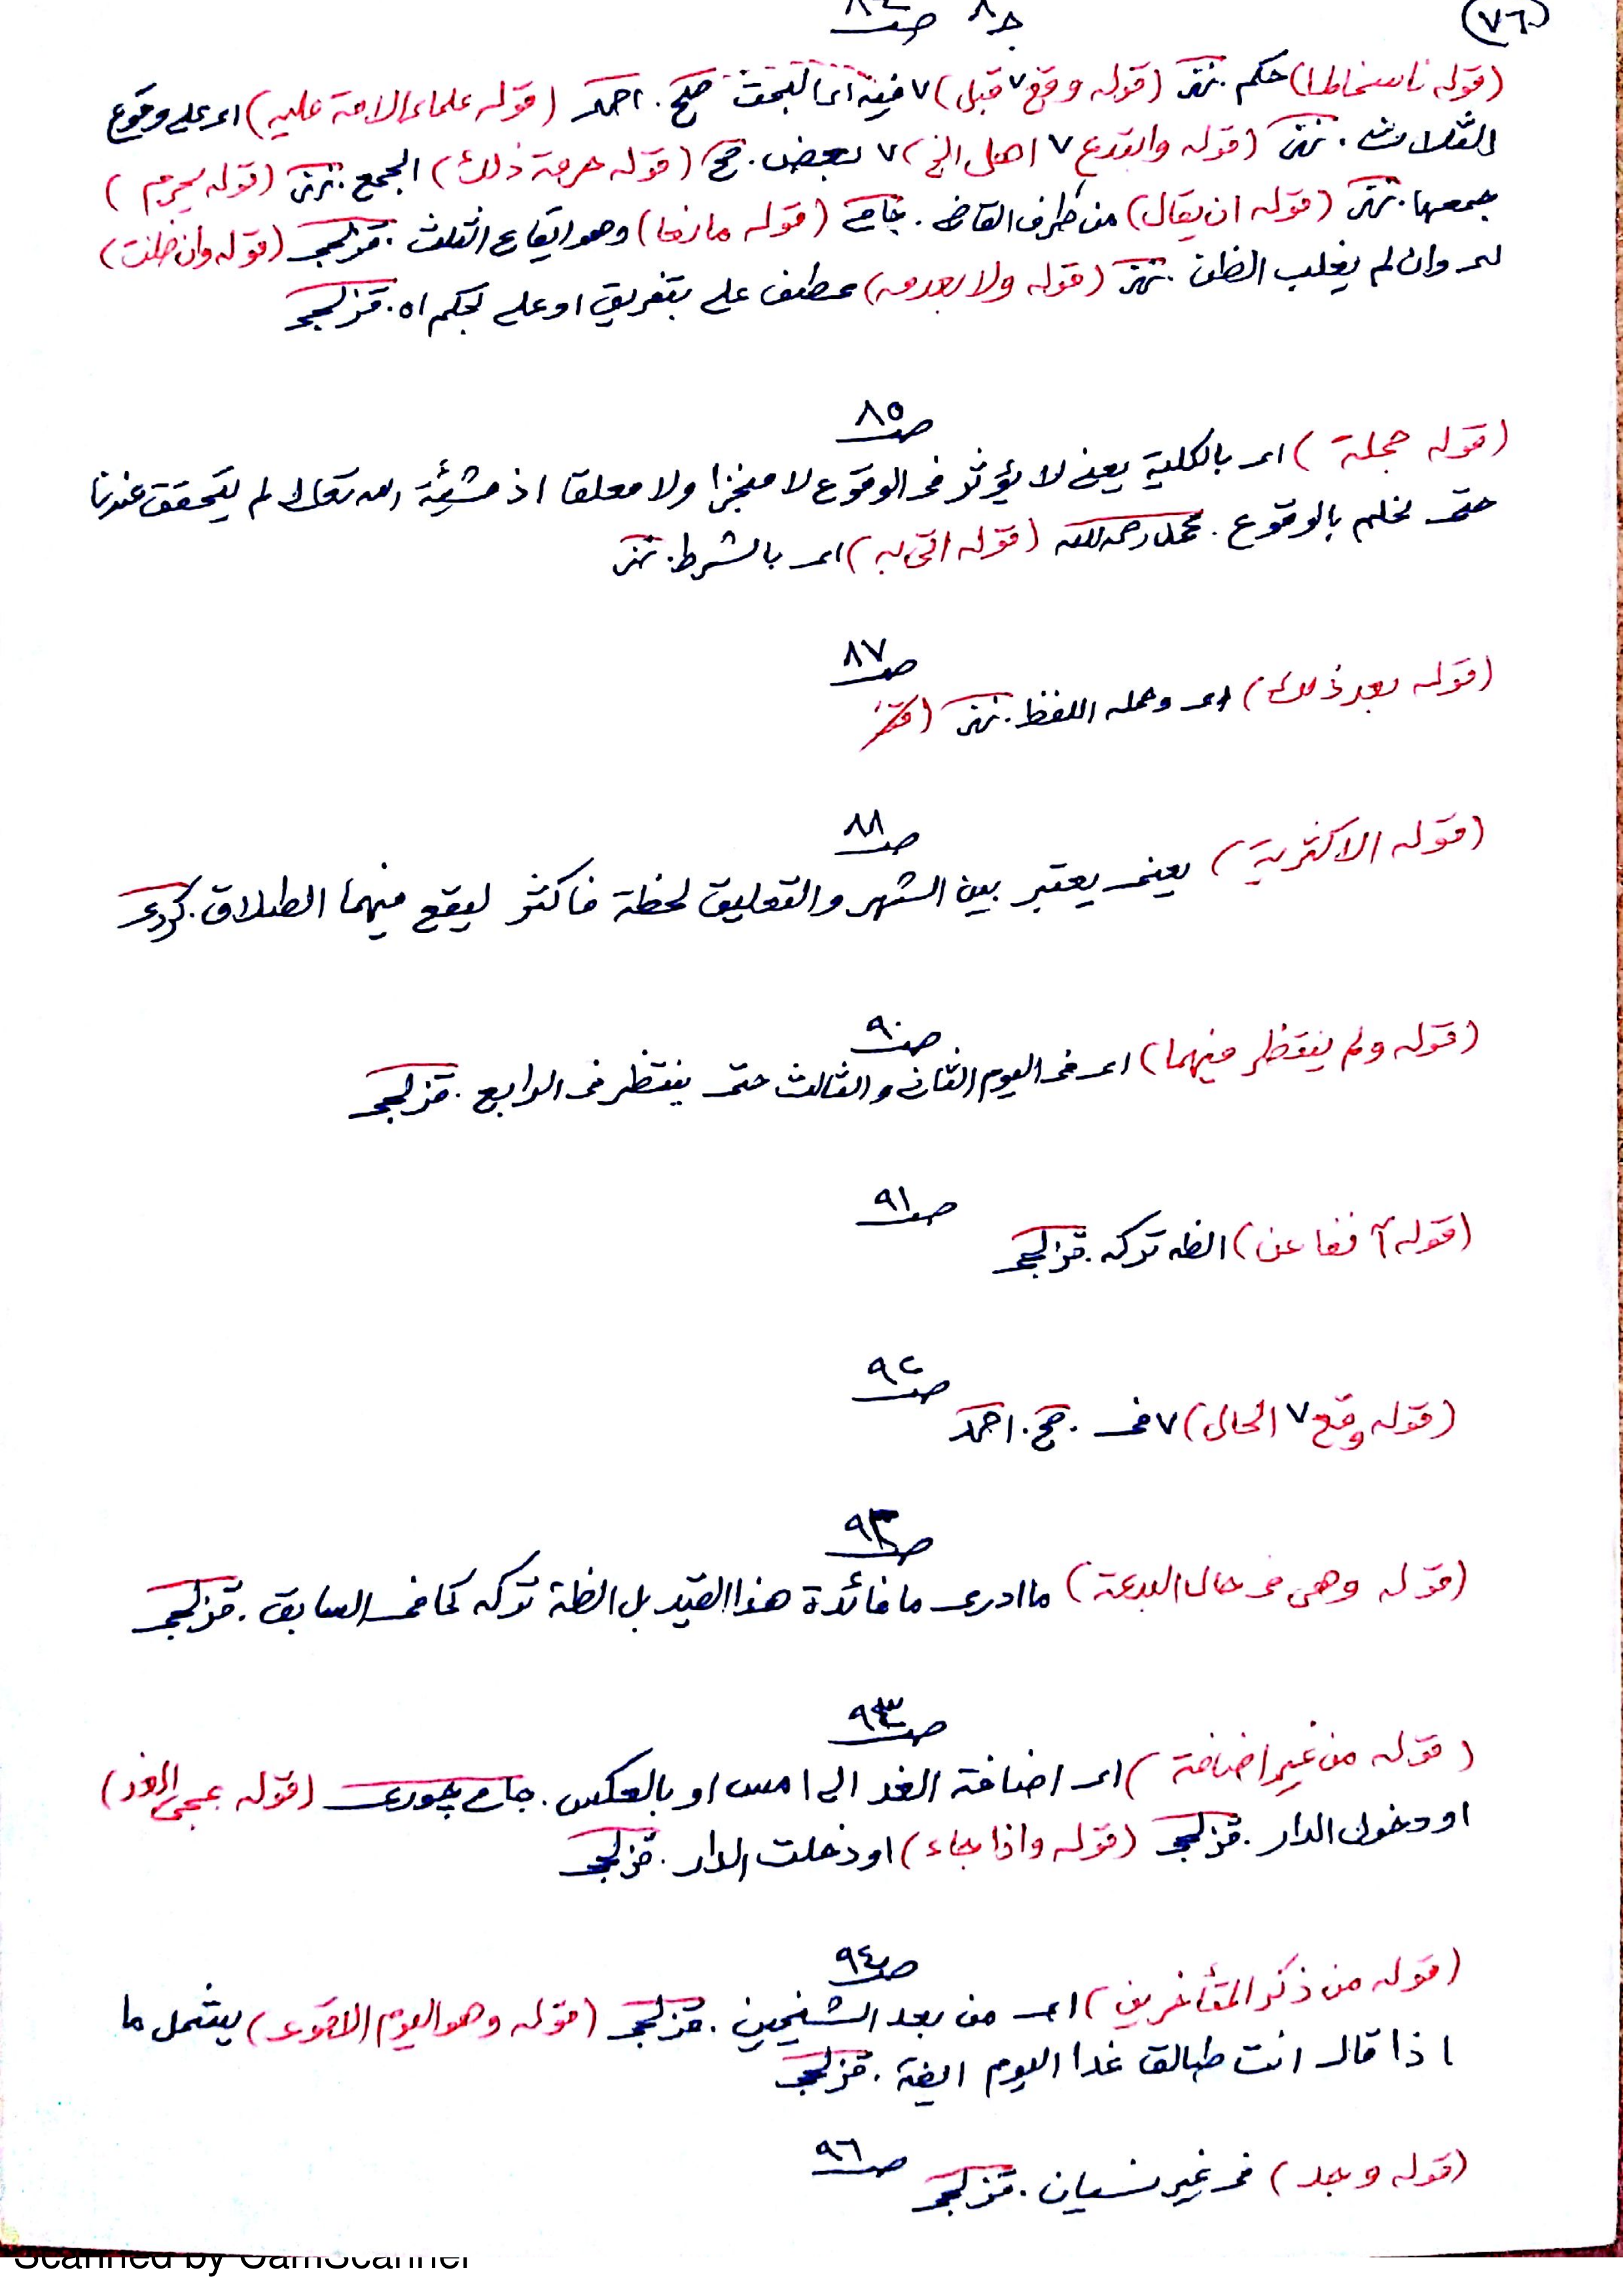 (٧٦)
ص ٨٤
(قوله ناسخا لها) حكم. (قوله وقع ٧ قبل) ٧ فيه صح. احمد (قوله علماء الامة عليه) اى على وقوع
الثلاث. (قوله وابتدع ٧ اهل الخ) ٧ بعض. صح (قوله حرمة ذلك) الجمع. (قوله يحرم)
جمعها. (قوله ان يقال) من طرف القاض. (قوله مانعا) وهو ايقاع الثلث. قزلجى (قوله وان ظنت)
اى وان لم يغلب الظن. (قوله ولا بعدمه) عطف على بتفريق او على لحكم اه. قزلجى
ص ٨٥
(قوله جملة) اى بالكلية يعنى لا يؤثر فى الوقوع لا منجزا ولا معلقا اذ مشيئة الله تعالى لم يتحقق عندنا
حتى نحكم بالوقوع. محمد رحمه الله (قوله اتى به) اى بالشرط.
ص ٨٧
(قوله بعد ذلك) اى وصله اللفظ.
ص ٨٨
(قوله الاكثرية) يعنى يعتبر بين الشهر والتعليق لحظة فاكثر ليقع فيهما الطلاق. كردى
ص ٩٠
(قوله ولم ينتظر فيهما) اى فى اليوم الثانى والثالث حتى ينتظر فى الرابع. قزلجى
ص ٩١
(قوله آنفا عن) الظه تركه. قزلجى
ص ٩٢
(قوله وقع ٧ الحال) ٧ فى. صح. احمد
ص ٩٣
(قوله وهى فى حال البدعة) ما ادرى ما فائدة هذا القيد بل الظه تركه كما فى السابق. قزلجى
ص ٩٣
(قوله من غير اضافة) اى اضافة الغد الى امس او بالعكس. جامع چورى (قوله بمجئ الغد)
او دخول الدار. قزلجى (قوله واذا جاء) او دخلت الدار. قزلجى
ص ٩٤
(قوله من ذكر المتأخرين) اى من بعد الشيخين. قزلجى (قوله وهو اليوم الاقوى) يشمل ما
اذا قال انت طالق غدا اليوم ايضه. قزلجى
ص ٩٦
(قوله وجد) فى غير نسيان. قزلجى
Scanned by CamScanner